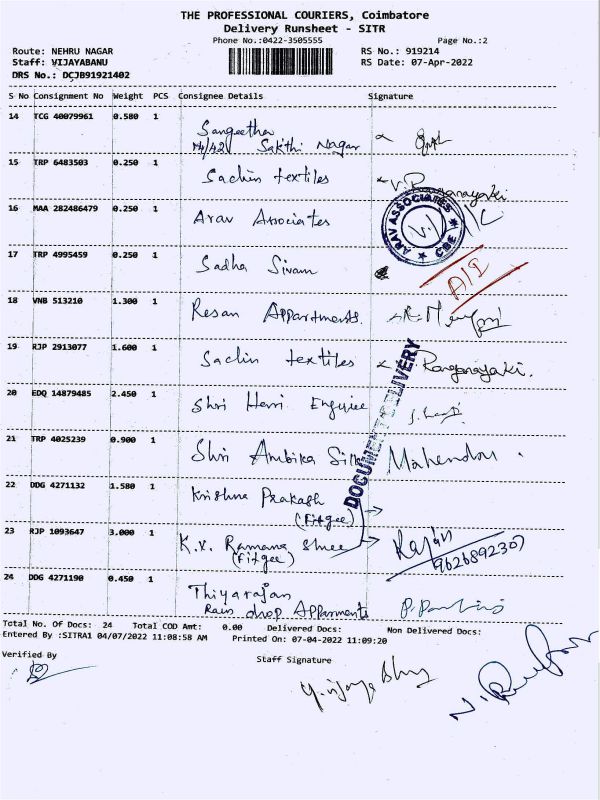 THE PROFESSIONAL COURIERS, Coimbatore
Delivery Runsheet - SITR
Phone No.:0422-3505555
Page No.:2
Route: NEHRU NAGAR
RS No.: 919214
Staff: VIJAYABANU
RS Date: 07-Apr-2022
DRS No.: DCJB91921402
S No Consignment No Weight PCS Consignee Details Signature
14 TCG 40079961 0.580 1 Sangeetha
Sakthi Nagar
15 TRP 6483503 0.250 1 Sachin textiles V. Ranganayaki
16 MAA 282486479 0.250 1 Arav Associates
ARAV ASSOCIATES
CBE
17 TRP 4995459 0.250 1 Sadha Sivam
18 VNB 513210 1.300 1 Resan Appartments.
19 RJP 2913077 1.600 1 Sachin textiles Ranganayaki.
20 EDQ 14879485 2.450 1 Shri Heni
21 TRP 4025239 0.900 1 Shri Ambika Silk
DOCUMENT DELIVERY
22 DDG 4271132 1.580 1 Krishna Prakash
(Fitgee)
23 RJP 1093647 3.000 1 K.V. Ramana Shree Rajan
(Fitgee) 9626892307
24 DDG 4271190 0.450 1 Thiyarajan
Rain drop Apparments
Total No. Of Docs: 24 Total COD Amt: 0.00 Delivered Docs: Non Delivered Docs:
Entered By :SITRA1 04/07/2022 11:08:58 AM Printed On: 07-04-2022 11:09:20
Verified By
Staff Signature